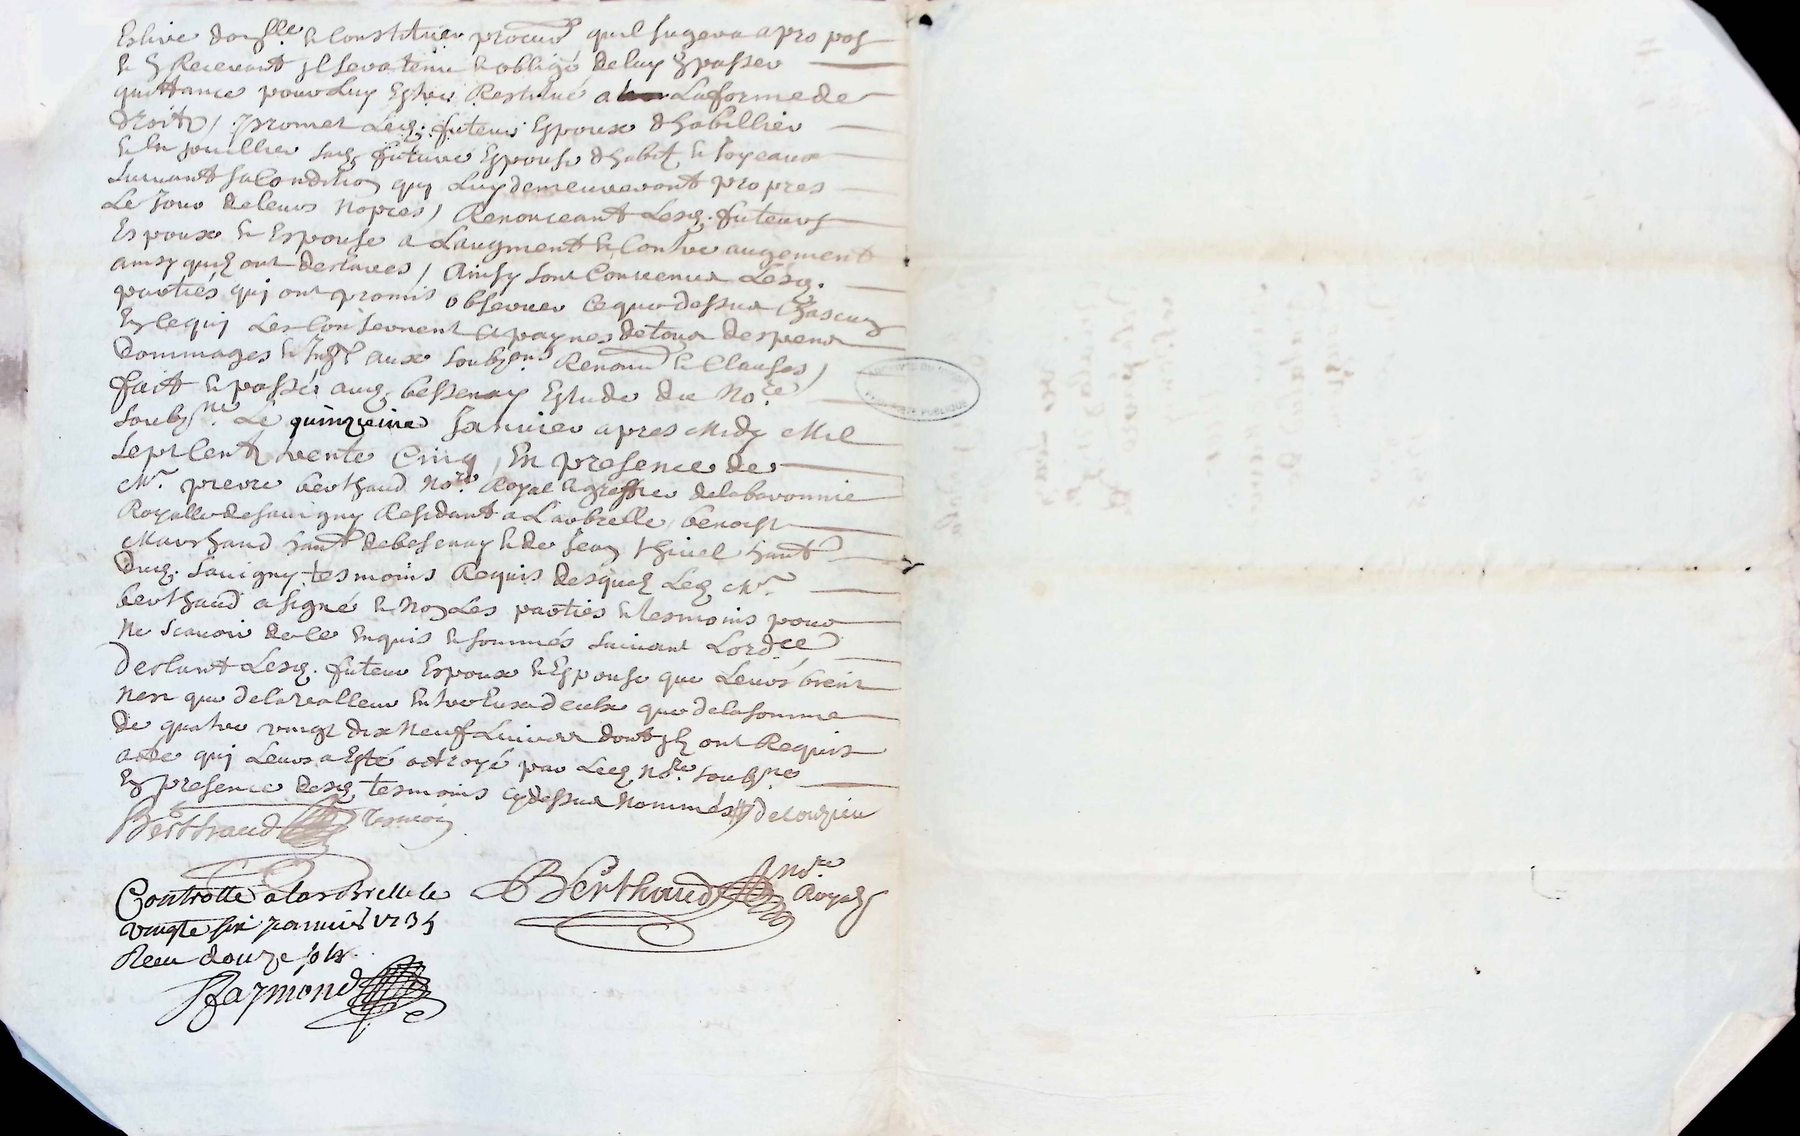 Eslire dom.lle & Constituer procur. quil jugera a propos
& En Recevant il sera tenu & obligé de luy En passer
quittance pour Luy Estre Restitué a La forme de
droits / promet Led. futeur Espoux d'habillier
& En jouillier sad. future Espouse d'habitz & joyeaux
suivant sa Condition quj Luy demeureront propres
Le jour de leurs nopces / Renonceant Lesd. futeurs
Espoux & Espouse a Laugment & Contre augement
ainsy quilz ont declarés / Ainsy sont Convenus Lesd.
parties quj ont promis observer ce que dessus Chascung
En ce quj Les Consernent a paynes de tous despens
dommages & Intts aux soubzons Renonn & Clauses /
fait & passé aud. bessenay Estude du No.re
soubz.ne Le quinzieme Janvier apres Midy Mil
sept Cent trente Cinq / En presence de
Mr. pierre berthaud No.re Royal & greffier de la baronnie
Royalle de savigny Residant a Larbrelle, benoist
Marchand hant de besenay & de Jean thivel hant
dud. savigny tesmoins Requis desquelz Led. Mr.
berthaud a signé & Non Les parties & tesmoins pour
Ne scavoir de ce Enquis & sommés suivant Lord.ce
declarant Lesd. futeur Espoux & Espouse que Leurs biens
Nest que de la valleur Entre Eux deulx que de la somme
de quatre vingt dix Neuf Livres dont ilz ont Requis
acte quj Leurs a Esté octroyé par Led. No.re soubz.ne
En presence desd. tesmoins cy dessus Nommés
Berthaud tesmoin
Berthaud No.re Royal
Controllé a Larbrelle le
vingte six janvier 1735
Receu douze sols
Raymond